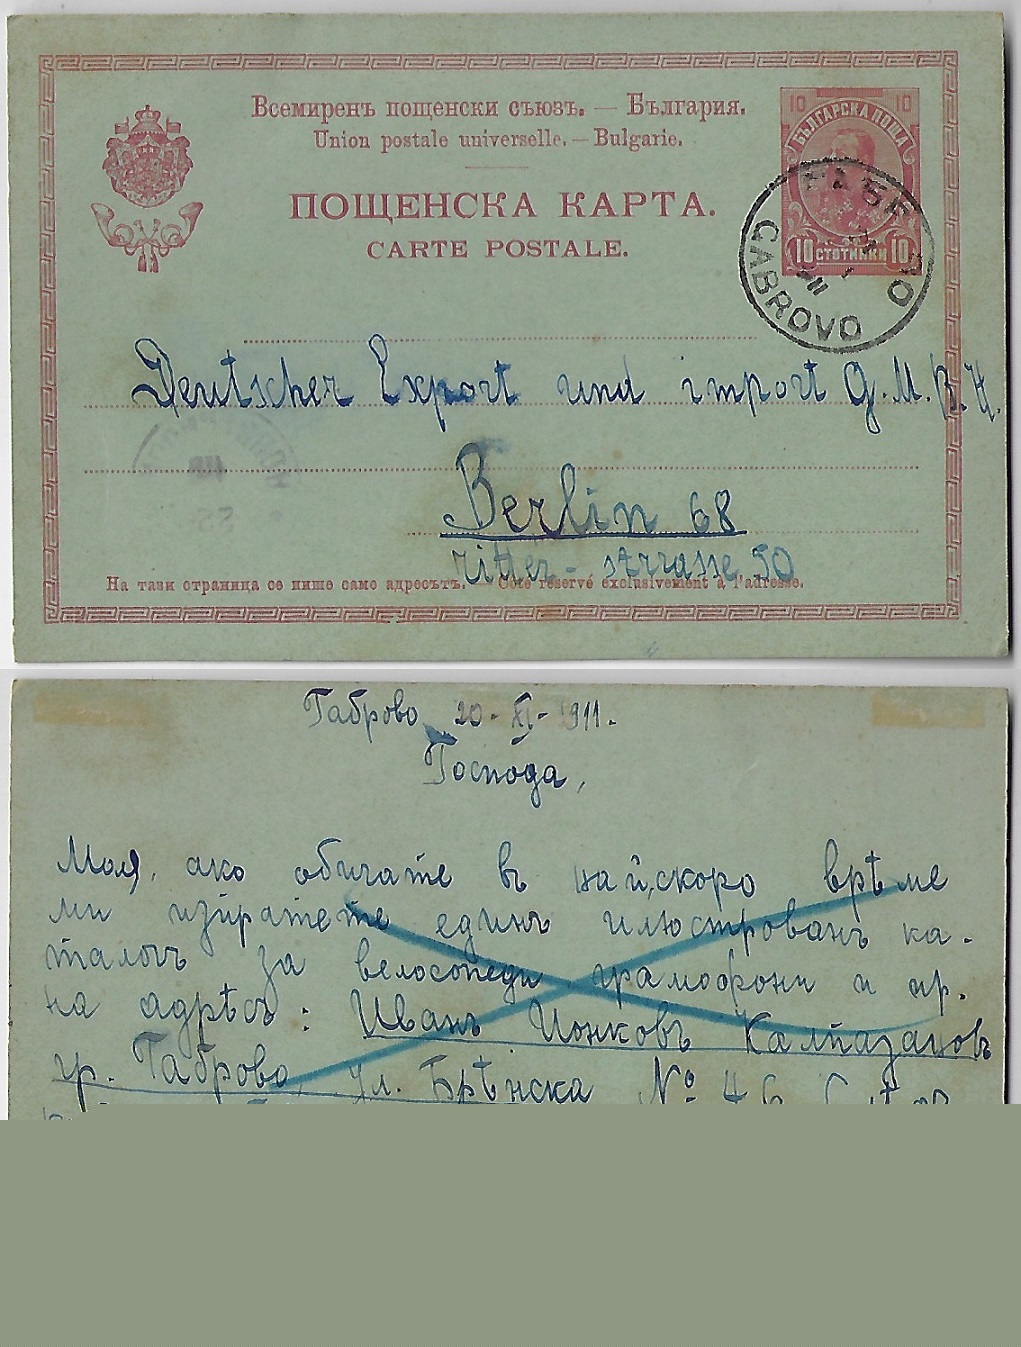 Всемиренъ пощенски съюзъ. — България.
Union postale universelle. — Bulgarie.
ПОЩЕНСКА КАРТА.
CARTE POSTALE.
10 10
БЪЛГАРСКА ПОЩА
10 СТОТИНКИ 10
GABROVO
Deutscher Export und import G.M.B.H.
Berlin 68
ritter-strasse 50
На тази страница се пише само адресътъ. — Côté réservé exclusivement à l'adresse.
Габрово 20-XI-1911.
Господа,
Моля, ако обичате въ най,скоро врѣме
ми изпратете единъ илюстрованъ ка-
талогъ за велосопеди грамофони и пр.
на адрѣсъ: Иванъ Ионковъ Калпазановъ
гр. Габрово, ул. Брѣнска № 46